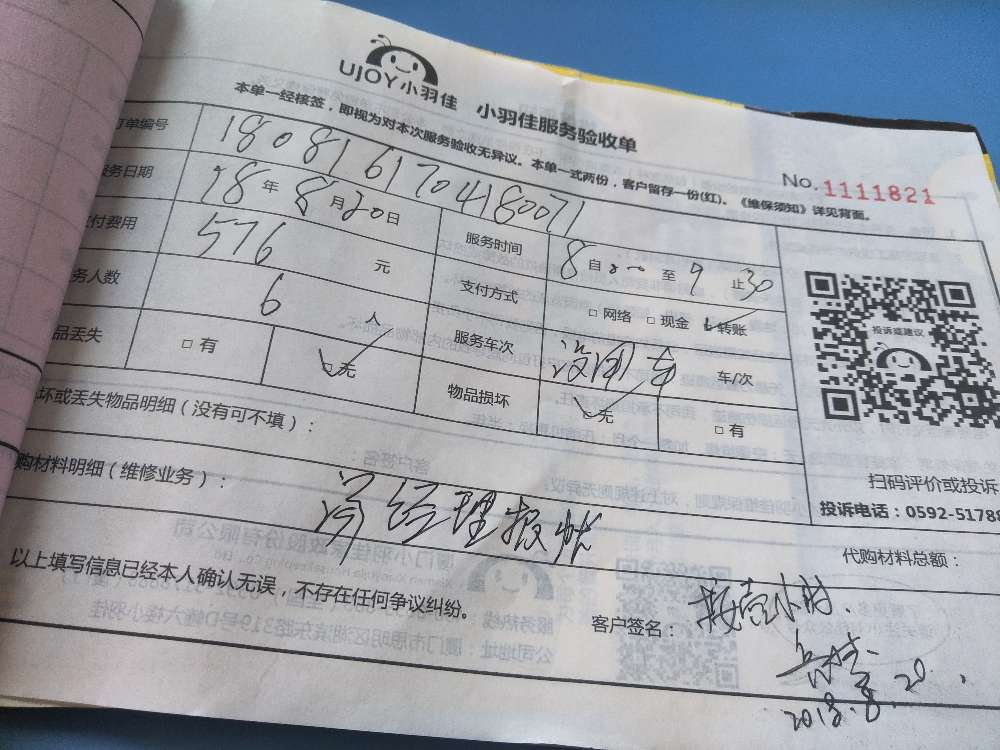 UJOY小羽佳 小羽佳服务验收单
本单一经核签，即视为对本次服务验收无异议。本单一式两份，客户留存一份(红)。《维保须知》详见背面。
No.1111821
订单编号 1808161704180071
服务日期 18年8月20日 服务时间 8自 至9止30
支付费用 576元 支付方式 □网络 □现金 ☑转账
务人数 6人 服务车次 没用车 车/次
品丢失 □有 ☑无 物品损坏 ☑无 □有
坏或丢失物品明细（没有可不填）：
扫码评价或投诉
投诉电话：0592-51788
投诉或建议
购材料明细（维修业务）： 经理报帐
代购材料总额：
以上填写信息已经本人确认无误，不存在任何争议纠纷。
客户签名： 按壹小时.
2018.8.20.